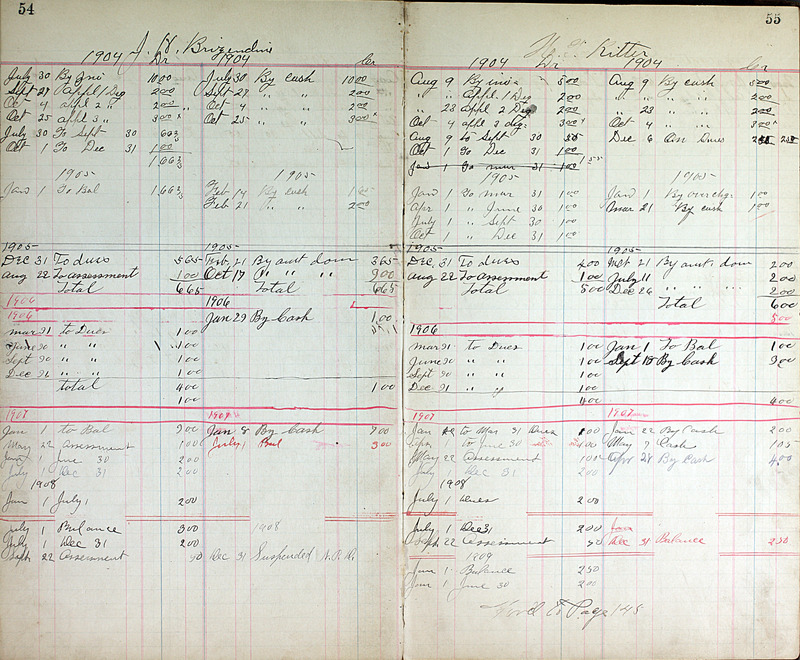 54
J. H. Brizendine
1904 Dr 1904 Cr
July 30 By Ini 1000 July 30 By cash 1000
Sept 27 appl 1 Deg 200 Sept 27 " " 200
Oct 4 appl 2 " 200 Oct 4 " " 200
Oct 25 appl 3 " 300 Oct 25 " " 300
July 30 To Sept 30
Oct 1 To Dec 31 100
1905 1905
Jan 1 To Bal Feb 14 By cash
Feb 21 " " 200
1905 1905
Dec 31 To dues 565 Feb. 21 By amt down 365
Aug 22 To assessment 100 Oct 17 " " " 300
Total 665 Total 665
1906 1906
1906
Jan 29 By Cash 100
Mar 31 to Dues 100
June 30 " " 100
Sept 30 " " 100
Dec 31 " " 100
Total 400 100
100
1907 1907
Jan 1 to Bal 300 Jan 8 By Cash 900
May 22 assessment 100 July 1 Bal 300
Jan 1 June 30 200
July 1 Dec 31 200
1908
Jan 1 July 1 200
July 1 Balance 300 1908
July 1 Dec 31 200
Sept 22 Assessment 50 Dec 31 Suspended N.P.D.
55
Ritter
1904 Dr 1904 Cr
Aug 9 By Inia 500 Aug 9 By cash 500
" " appl. 1 Deg 200 " " " " 200
" 23 appl 2 Deg 200 " 23 " " 200
Oct 4 appl 3 deg. 300 Oct 4 " " 300
Aug 9 to Sept 30 55 Dec 6 Dues 255
Oct 1 To Dec 31 100
Jan 1 To mar 31 100 155
1905 1905
Jan 1 To mar 31 100 Jan 1 By overchg. 100
Apr 1 " June 30 100 Mar 21 By cash 100
July 1 " Sept 30 100
Oct 1 " Dec 31 100
1905 1905
Dec 31 To dues 400 Mar 21 By amt. down 200
Aug 22 To assessment 100 July 11 200
Total 500 Dec 26 " " " 200
Total 600
500
1906
Mar 31 to Dues 100 Jan 1 To Bal 100
June 30 " " 100 Sept 18 By Cash 300
Sept 30 " " 100
Dec 31 " " 100
400 400
1907 1907
Jan to Mar 31 Dues 100 Jan 22 By Cash 200
Apr 1 to June 30 100 May 9 Cash 105
May 22 Assessment Apr 28 By Cash 400
July 1 Dec 31 200
1908
July 1 Dues 200
July 1 Dec 31 200
Sept 22 Assessment 50 Dec 31 Balance 250
1909
Jan 1 Balance 250
Jan 1 June 30 200
Fwrd to Page 145